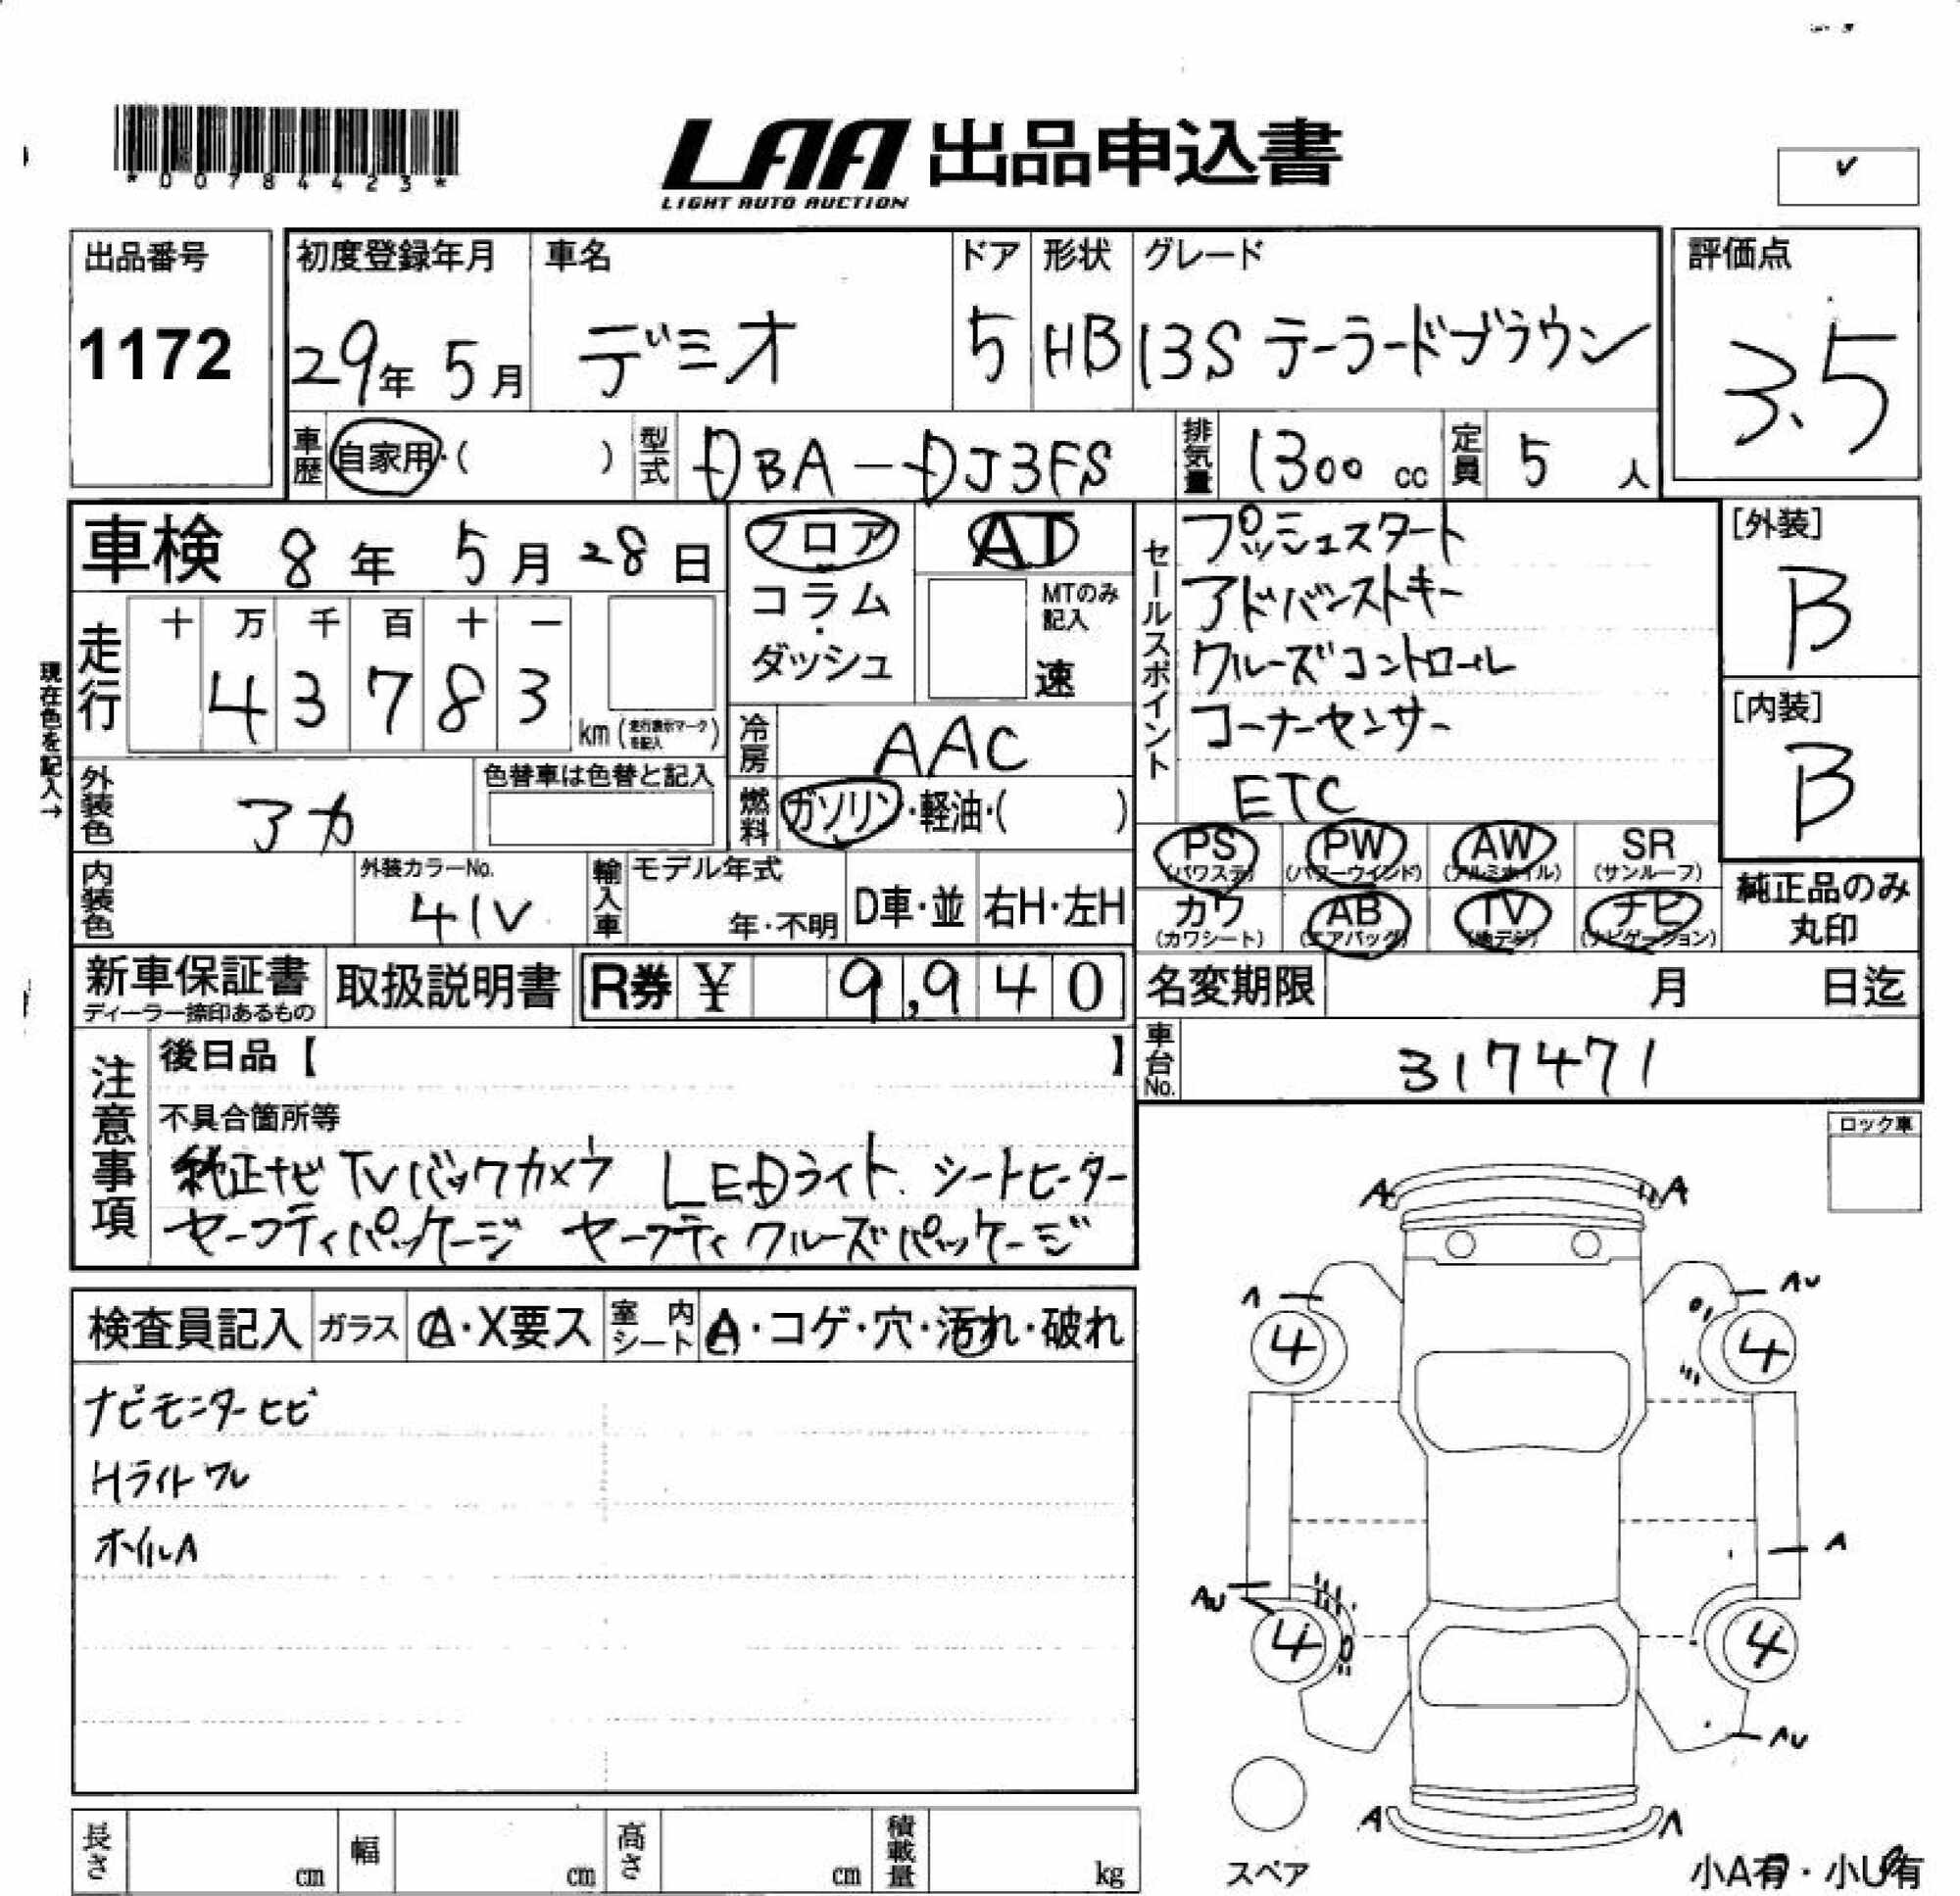 *00784423*
LAA 出品申込書
LIGHT AUTO AUCTION
出品番号
1172
初度登録年月
29年 5月
車名
デミオ
ドア
5
形状
HB
グレード
13S テーラードブラウン
評価点
3.5
車歴 自家用・( )
型式 DBA-DJ3FS
排気量 1300 cc
定員 5 人
車検 8年 5月 28日
現在色を記入→
走行
十 万 千 百 十 一
4 3 7 8 3
km (走行表示マークを記入)
フロア
コラム
・
ダッシュ
AT
MTのみ記入
速
冷房 AAC
燃料 ガソリン・軽油・( )
セールスポイント
プッシュスタート
アドバンストキー
クルーズコントロール
コーナーセンサー
ETC
[外装]
B
[内装]
B
外装色 アカ
色替車は色替と記入
内装色
外装カラーNo.
41V
輸入車
モデル年式
年・不明
D車・並
右H・左H
PS (パワステ)
PW (パワーウインド)
AW (アルミホイル)
SR (サンルーフ)
カワ (カワシート)
AB (エアバッグ)
TV (地デジ)
ナビ (ナビゲーション)
純正品のみ
丸印
新車保証書
ディーラー捺印あるもの
取扱説明書
R券 ¥ 9,940
名変期限 月 日迄
車台No. 317471
注意事項
後日品【 】
不具合箇所等
純正ナビ TV バックカメラ LEDライト シートヒーター
セーフティパッケージ セーフティクルーズパッケージ
ロック車
検査員記入
ガラス A・X要ス
室内シート A・コゲ・穴・汚れ・破れ
ナビモニターヒビ
Hライトワレ
ホイルA
A A
A AU
4 4
A
AU
4 4
AU
A A
スペア
小A有・小U有
長さ cm
幅 cm
高さ cm
積載量 kg